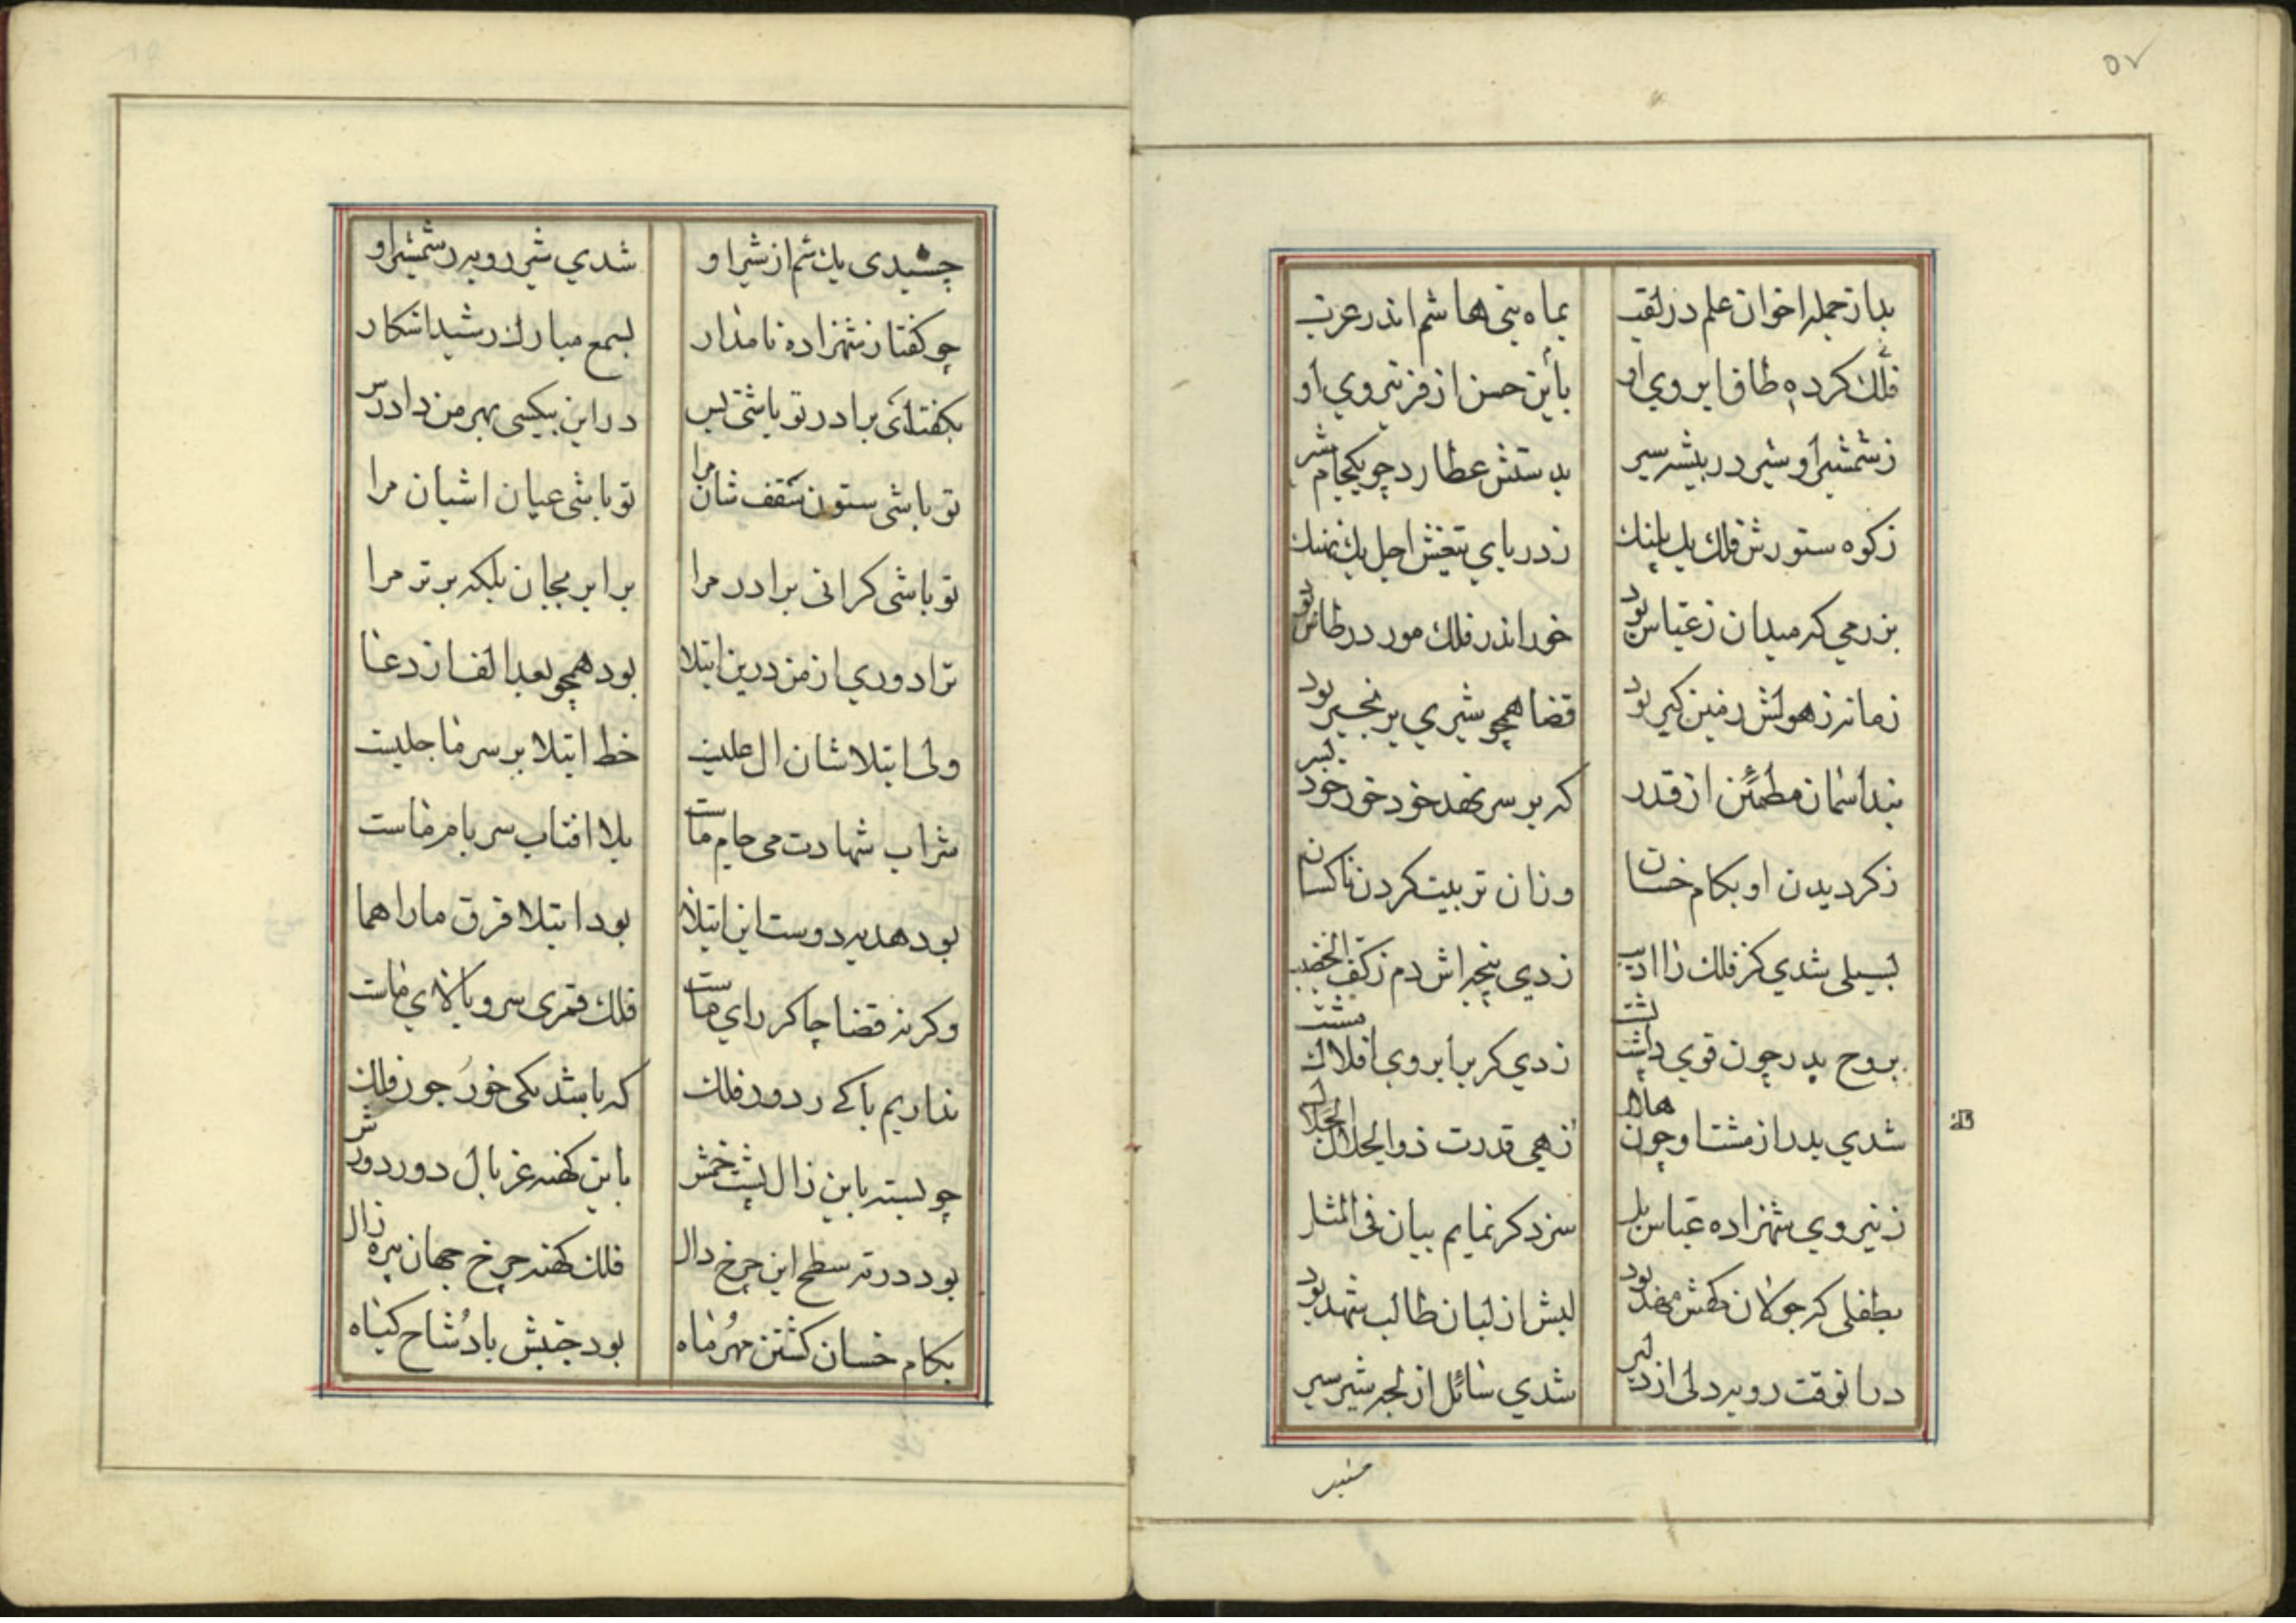 ۵۷
بد از جمله اخوان علم در لقب بماه بنی هاشم اندر عرب
فلک کرده طاق ابروی او بأین حسن از فر نیروی او
ز شمشیر او شیر در بیشه سیر بدستش عطارد چو یکجام شیر
ز کوه ستورش فلک یک پلنک ز دریای تیغش اجل یک نهنک
بزرمی که میدان ز عباس بود خور اندر فلک مور در طاس بود
زمانه ز هولش زمین کیر بود قضا همچو شیری بزنجیر بود
بند اسمان مطمئن از قدر که بر سر نهد خود خور خود بسر
ز کردیدن او بکام خسان و زان تربیت کردن ناکسان
بسیلی شدی کز فلک را ادیب زدی پنجه اش دم ز کف الخضیب
بروح پدر چون قوی داشت پشت زدی کر بابروی افلاک مشت
شدی بدر از مشت او چون هلال زهی قدرت ذوالجلال الجلال
ز نیروی شهزاده عباس یل سزد کر نمایم بیان فی المثل
بطفلی که جولان کهش مهد بود لبش از لبان طالب شهد بود
در انوقت روبه دلی از دلیر شدی سائل از لجه شیر سیر
چشیدی یک شم از شیر او شدی شیر روبه ز شمشیر او
چو کفتار شهزاده نامدار بسمع مبارک رشید اشکار
بکفتا ای برادر تو باشی بس در این بیکسی بهر من دادرس
تو باشی ستون سقف شان مرا تو باشی عیان اشیان مرا
تو باشی کرانی برادر مرا برابر بجان بلکه برتر مرا
ترا دوری از من درین ابتلا بود همچو بعد الف از دغا
ولی ابتلا شان ال علیست خط ابتلا بر سر ما جلیست
شراب شهادت می جام ماست بلا افتاب سر بام ماست
بود هدیه دوست این ابتلا بود ابتلا فرق ما را هما
وکرنه قضا چاکر رای ماست فلک قمری سرو بالای ماست
نداریم باکی ز دور فلک که باشد یکی خور جور فلک
چو بسته باین زال پشت خمش باین کهنه غربال دور دورش
بود در ته سطح این چرخ دال فلک کهنه چرخ جهان پیره زال
بکام خسان کشتن مهر و ماه بود جنبش باد شاخ کیاه